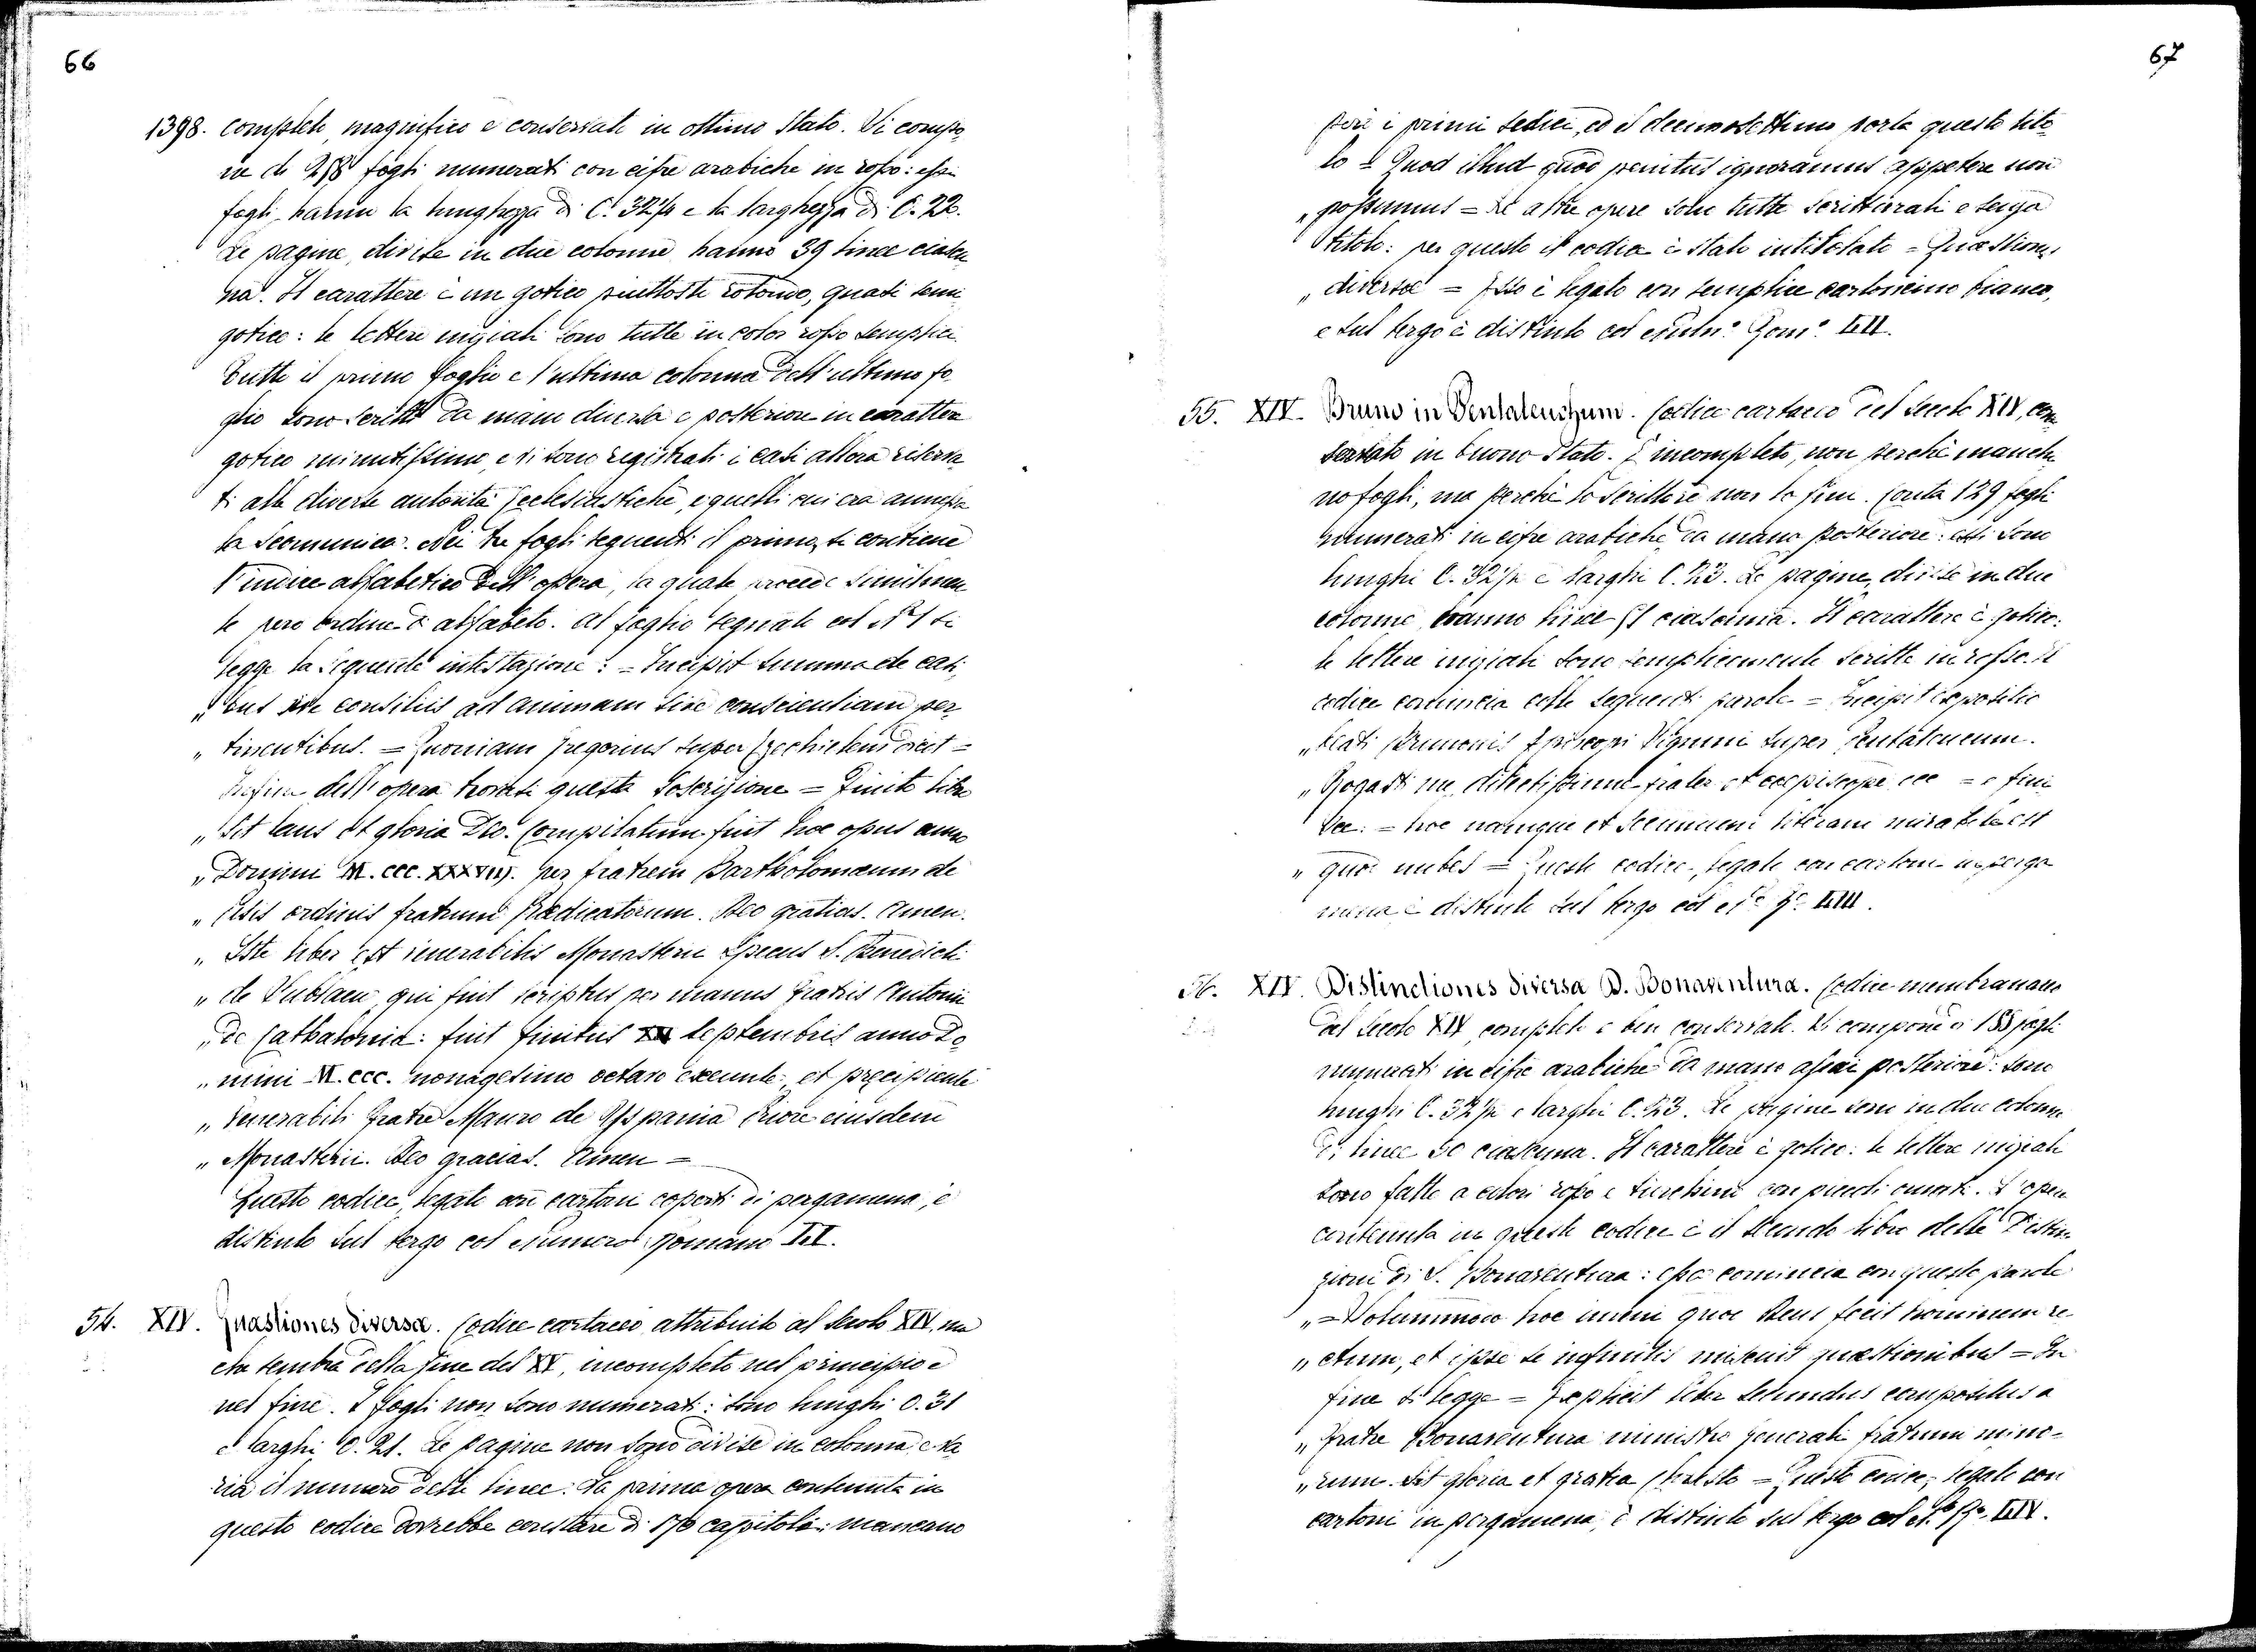 66
1398. completo, magnifico e conservato in ottimo stato. Si compo-
ne di 218 fogli numerati con cifre arabiche in rosso: essi
fogli, hanno la lunghezza di C. 32½ e la larghezza di C. 22.
Le pagine, divise in due colonne hanno 39 linee ciascu-
na. Il carattere è un gotico piuttosto rotondo, quasi semi
gotico: le lettere iniziali sono tutte in color rosso semplice.
Tutto il primo foglio e l'ultima colonna dell'ultimo fo-
glio sono scritti da mano diversa e posteriore in carattere
gotico minutissimo, e vi sono registrati i casi allora riserva-
ti alle diverse autorità Ecclesiastiche, e quelli cui era annessa
la scomunica. Nei tre fogli seguenti il primo, si contiene
l'indice alfabetico dell'opera, la quale procede similmen-
te per ordine di alfabeto. Al foglio segnato col N° 1 si
legge la seguente intestazione: = Incipit summa de casi-
„ bus sive consiliis ad animam sive conscientiam per-
„ tinentibus. = Quoniam Gregorius super Ezechielem dicit =
Infine dell'opera trovasi questa soscrizione = Finito libro
„ Sit laus et gloria Deo. Compilatum fuit hoc opus anno
„ Domini M.CCC.XXXVIIJ. per fratrem Bartholomæum de
„ Pisis ordinis fratrum Prædicatorum. Deo gratias. Amen.
„ Iste liber est venerabilis Monasterii Specus S. Benedicti
„ de Sublacu, qui fuit scriptus per manus Fratris Antonii
„ de Cathalonia: fuit finitus septembris anno Do-
„ mini M.CCC. nonagesimo octavo exeunte, et precipiente
„ venerabili Fratre Mauro de Yspania Priore eiusdem
„ Monasterii. Deo gracias. Amen =
Questo codice, legato con cartoni coperti di pergamena, è
distinto sul tergo col Numero Romano LII.
54. XIV. Quæstiones diversæ. Codice cartaceo attribuito al secolo XIV, ma
che sembra della fine del XV, incompleto nel principio e
nel fine. I fogli non sono numerati: sono lunghi C. 31
e larghi C. 21. Le pagine non sono divise in colonna e va-
ria il numero delle linee. La prima opera contenuta in
questo codice dovrebbe constare di 170 capitoli: mancano
67
però i primi sedici, ed il decimosettimo porta questo tito-
lo = Quod illud quod penitus ignoramus appetere non
„ possumus = Le altre opere sono tutte scritturali e senza
titolo: per questo il codice è stato intitolato = Quæstiones
„ diversæ = Esso è legato con semplice cartoncino bianco,
e sul tergo è distinto col Num° Rom° LIII.
55. XIV. Bruno in Pentateuchum. Codice cartaceo del secolo XIV, con-
servato in buono stato. È incompleto, non perchè manchi-
no fogli, ma perchè lo scrittore non lo finì. Conta 129 fogli
numerati in cifre arabiche da mano posteriore: essi sono
lunghi C. 32½ e larghi C. 23. Le pagine, divise in due
colonne hanno linee 51 ciascuna. Il carattere è gotico:
le lettere iniziali sono semplicemente scritte in rosso. Il
codice comincia colle seguenti parole = Incipit expositio
„ Beati Brunonis Episcopi Signini super Pentateucum.
„ Rogasti me, dilectissime frater et coepiscope ecc = e fini-
sce: = hoc namque et secundum literam mirabile est
„ quod nubes = Questo codice, legato con cartone in perga-
mena è distinto sul tergo col N° R° LIIII.
56. XIV. Distinctiones diversa D. Bonaventura. Codice membranaceo
del secolo XIV completo e ben conservato. Si compone di 155 fogli
numerati in cifre arabiche da mano assai posteriore: sono
lunghi C. 32½ e larghi C. 23. Le pagine sono in due colonne
di linee 50 ciascuna. Il carattere è gotico: le lettere iniziali
sono fatte a colori rosso e turchino con piccoli ornati. L'opera
contenuta in questo codice è il secondo libro delle Distin-
zioni di S. Bonaventura: essa comincia con queste parole
„ = Solummodo hoc inveni quod Deus fecit hominem re-
„ ctum, et ipse se infinitis miscuit quæstionibus = In
fine si legge = Explicit liber secundus compositus a
„ Fratre Bonaventura ministro generali fratrum mino-
„ rum. Sit gloria et gratia Christo = Questo codice, legato con
cartoni in pergamena, è distinto sul tergo col N° R° LIV.